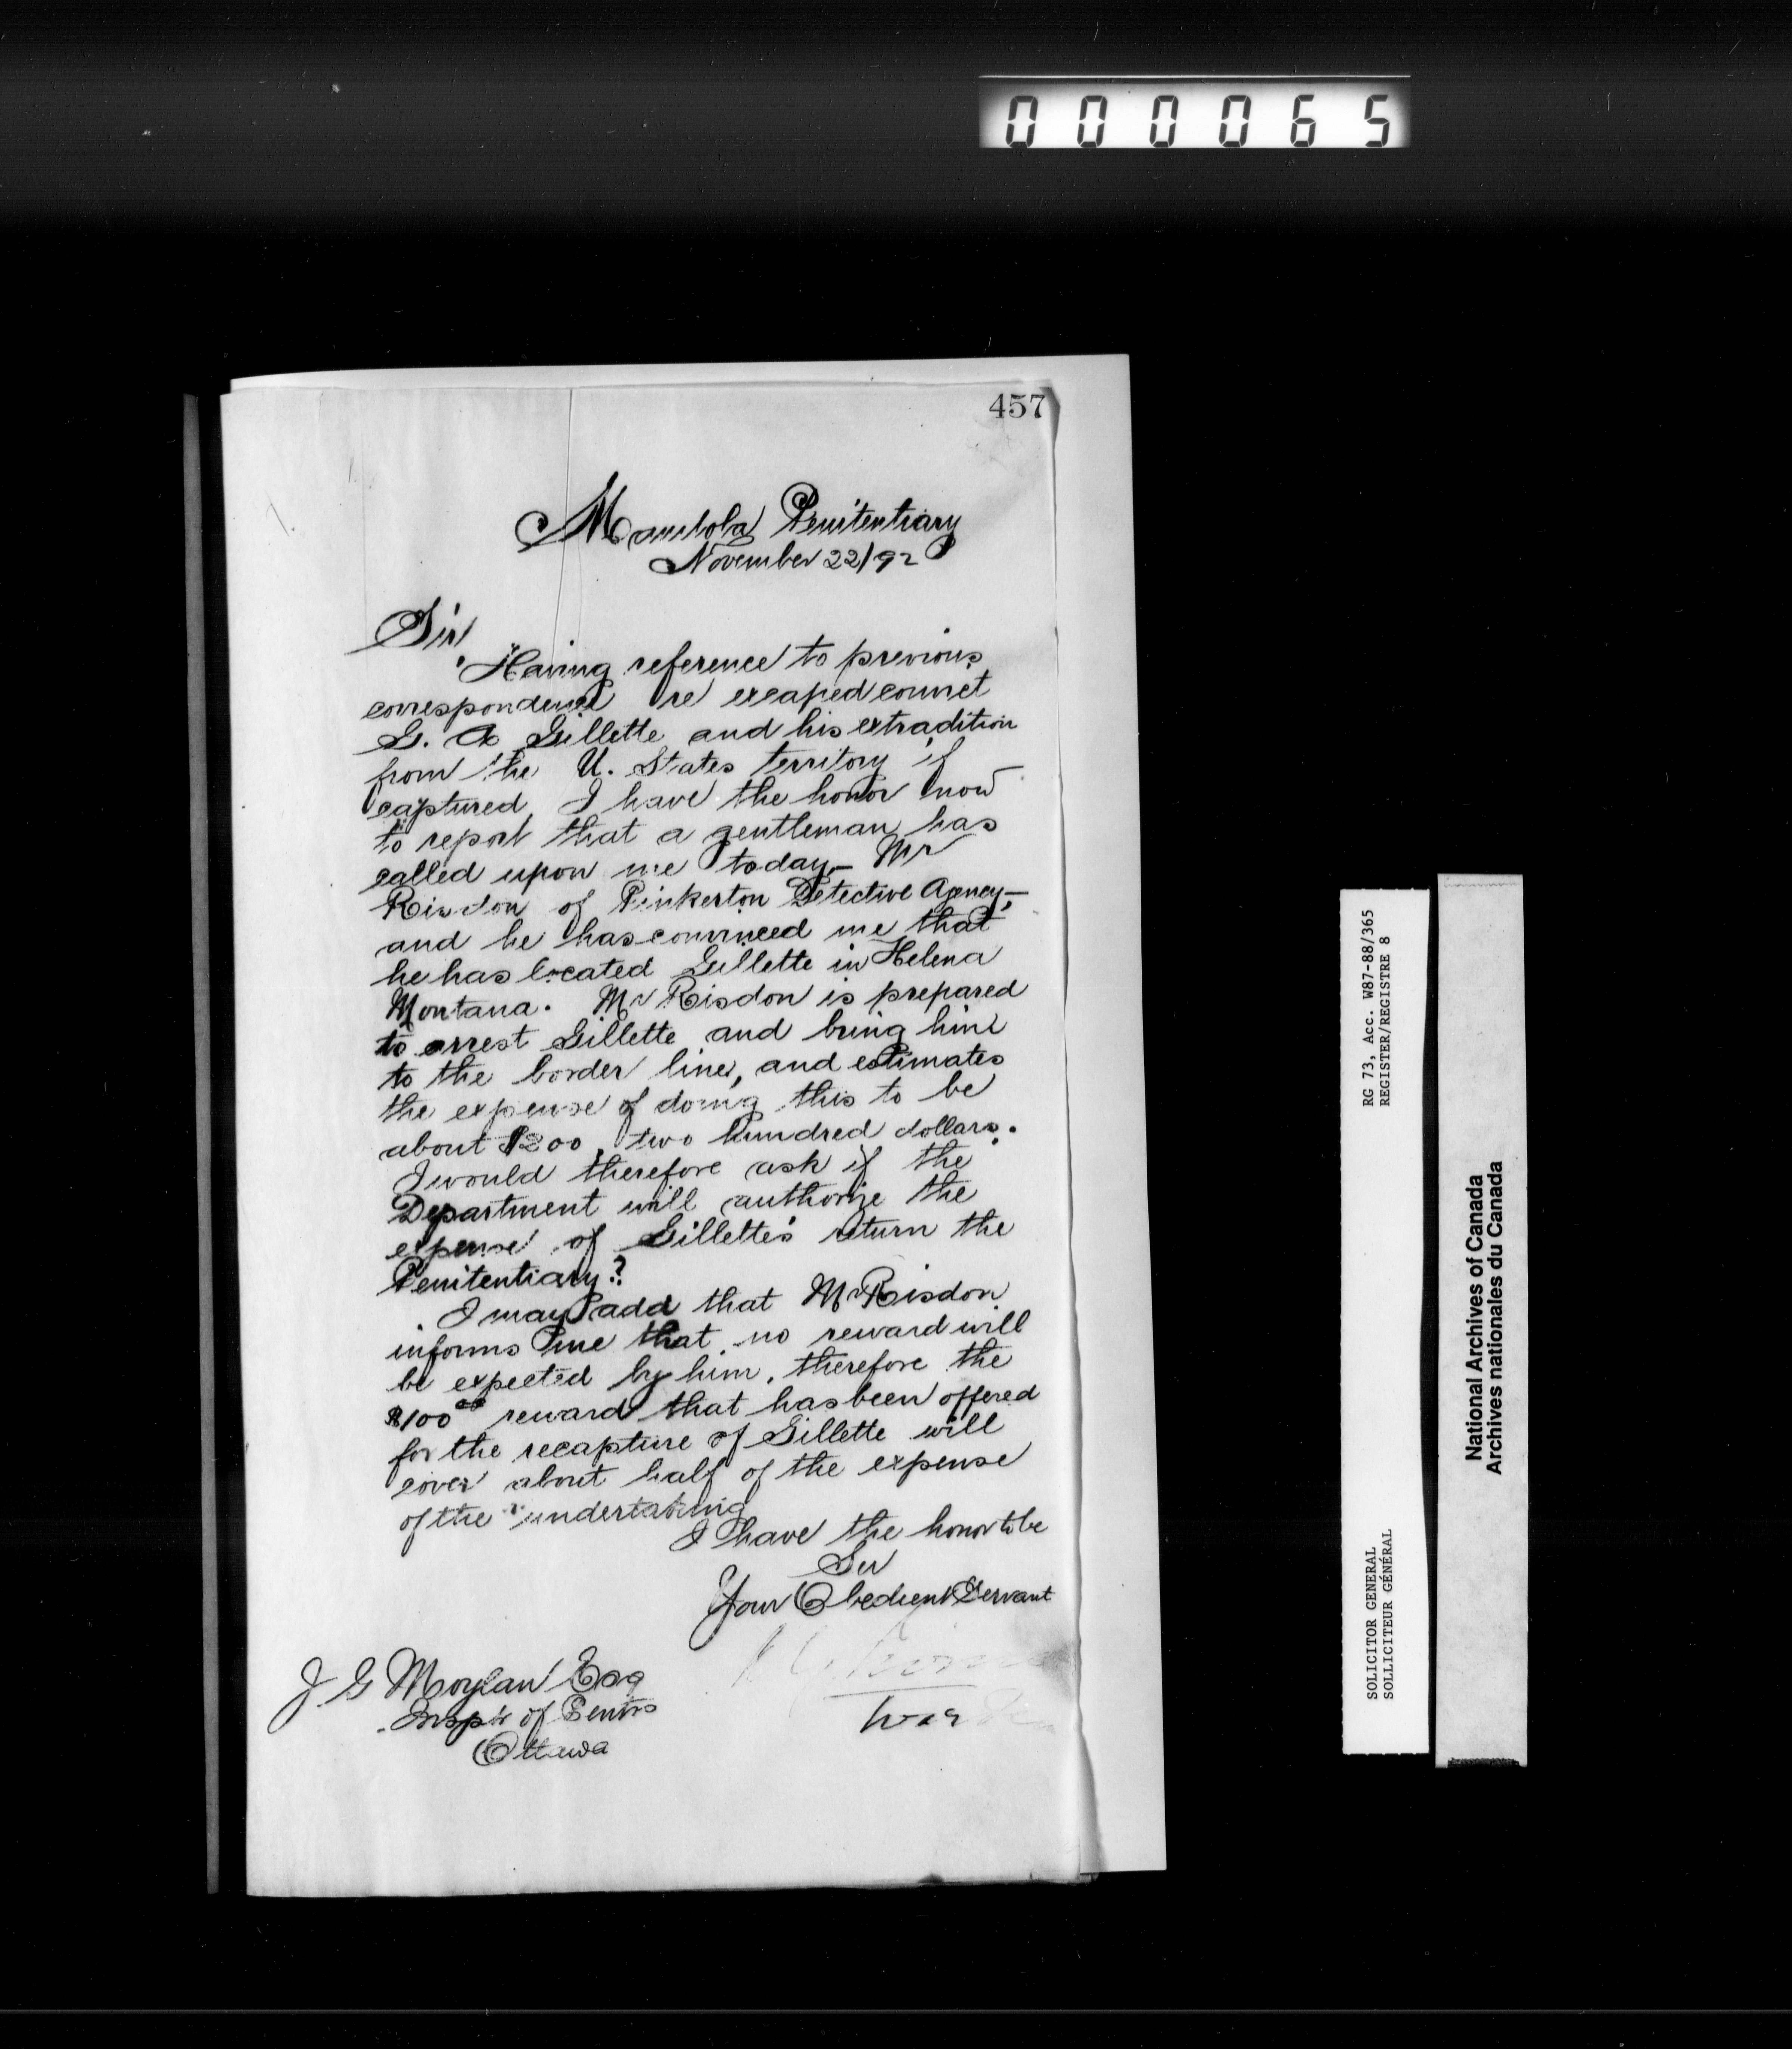 000065
457
Manitoba Penitentiary
November 22/92
Sir
Having reference to previous
correspondence re escaped convict
G. A Gillette and his extradition
from the U. States territory if
captured, I have the honor now
to report that a gentleman has
called upon me today - Mr
Risdon of Pinkerton Detective Agency -
and he has convinced me that
he has located Gillette in Helena
Montana. Mr Risdon is prepared
to arrest Gillette and bring him
to the border line, and estimates
the expense of doing this to be
about $200, two hundred dollars.
I would therefore ask if the
Department will authorize the
expense of Gillette's return the
Penitentiary?
I may add that Mr Risdon
informs me that no reward will
be expected by him, therefore the
$100.00 reward that has been offered
for the recapture of Gillette will
cover about half of the expense
of the undertaking
I have the honor to be
Sir
Your Obedient Servant
Warden
J G Moylan Esq
Insp'r of Penit's
Ottawa
RG 73, Acc. W87-88/365
REGISTER/REGISTRE 8
SOLICITOR GENERAL
SOLLICITEUR GÉNÉRAL
National Archives of Canada
Archives nationales du Canada